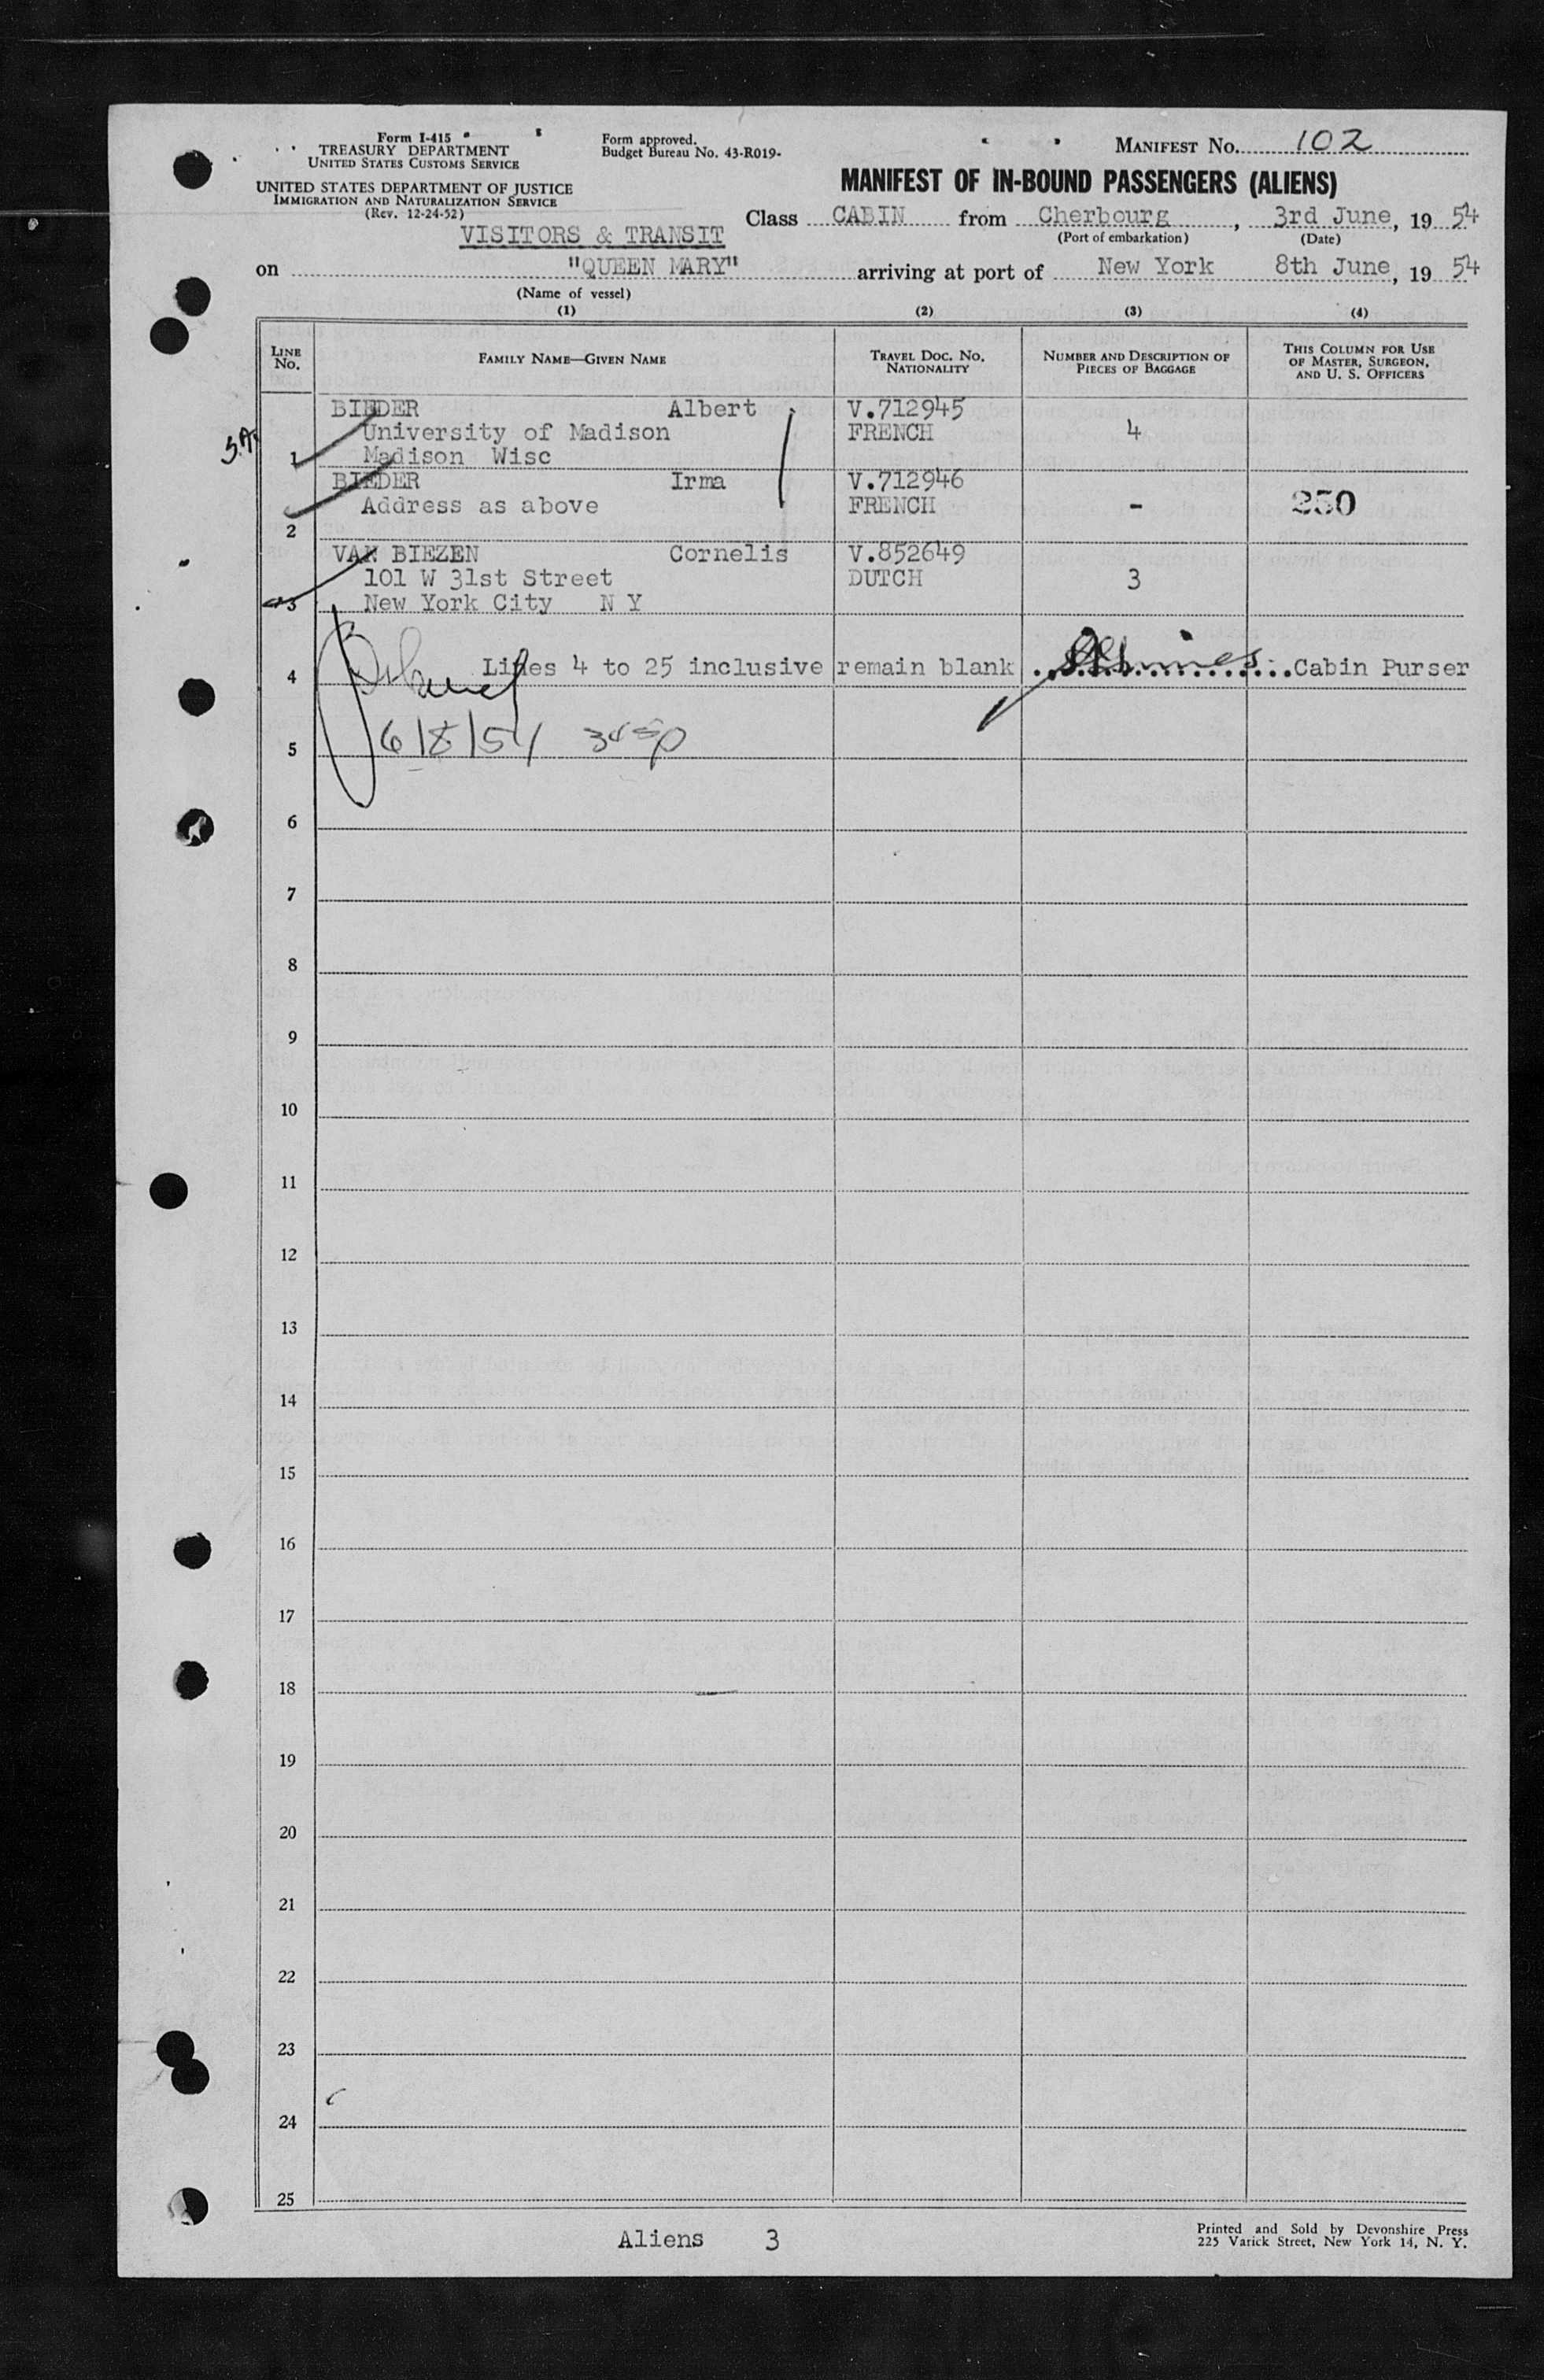 Form I-415
TREASURY DEPARTMENT
UNITED STATES CUSTOMS SERVICE
UNITED STATES DEPARTMENT OF JUSTICE
IMMIGRATION AND NATURALIZATION SERVICE
(Rev. 12-24-52)
Form approved.
Budget Bureau No. 43-R019-
MANIFEST NO. 102
MANIFEST OF IN-BOUND PASSENGERS (ALIENS)
Class CABIN from Cherbourg, 3rd June, 1954
(Port of embarkation) (Date)
VISITORS & TRANSIT
on "QUEEN MARY" arriving at port of New York 8th June, 1954
(Name of vessel)
(1) (2) (3) (4)
LINE NO. FAMILY NAME—GIVEN NAME TRAVEL DOC. NO. NATIONALITY NUMBER AND DESCRIPTION OF PIECES OF BAGGAGE THIS COLUMN FOR USE OF MASTER, SURGEON, AND U. S. OFFICERS
BIEDER Albert V.712945
University of Madison FRENCH 4
1 Madison Wisc
BIEDER Irma V.712946
Address as above FRENCH - 230
2
VAN BIEZEN Cornelis V.852649
101 W 31st Street DUTCH 3
3 New York City N Y
4 Lines 4 to 25 inclusive remain blank Cabin Purser
5 6/8/54
6
7
8
9
10
11
12
13
14
15
16
17
18
19
20
21
22
23
24
25
Aliens 3
Printed and Sold by Devonshire Press
225 Varick Street, New York 14, N. Y.